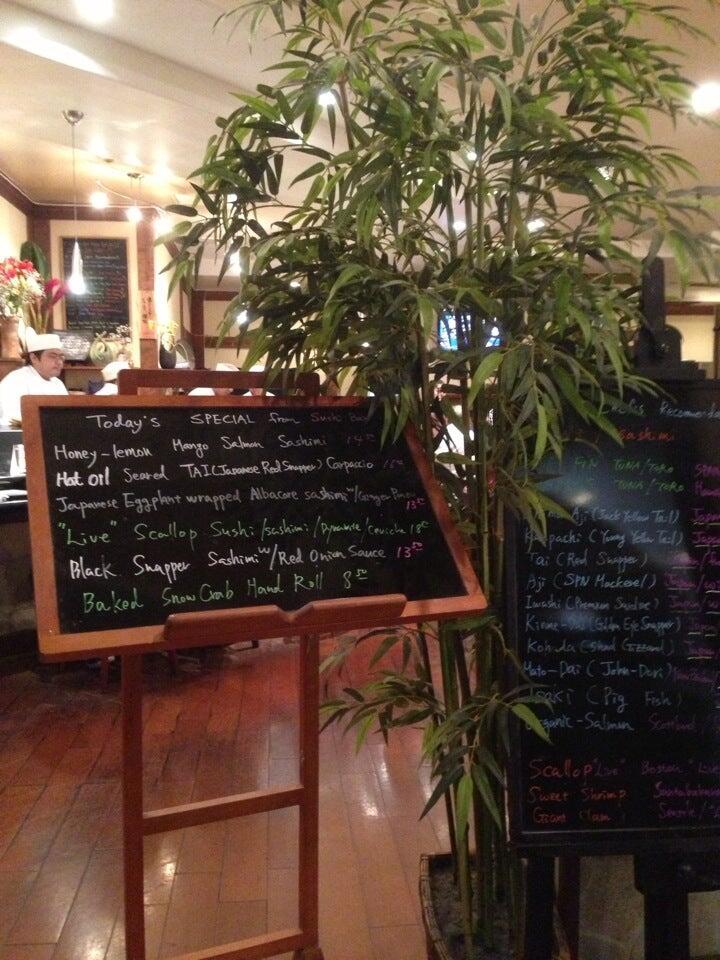 Today's SPECIAL from Sushi Bar
Honey-lemon Mango Salmon Sashimi
Hot Oil Seared TAI (Japanese Red Snapper) Carpaccio
Japanese Eggplant wrapped Albacore sashimi w/ Ginger
13
"Live" Scallop Sushi/sashimi/Dynamite/Ceviche 18
Black Snapper Sashimi w/ Red Onion Sauce 13 50
Baked Snow Crab Hand Roll 8 50
Chefs Recommenda
Sashimi
FIN TUNA/TORO
TUNA/TORO
Aji (Jack Yellow Tail)
Kanpachi (Young Yellow Tail)
Tai (Red Snapper)
Aji (SPN Mackerel)
Iwashi (Premium Sardine)
Kinme-Dai (Golden Eye Snapper)
Kohada (Shad Gizzard)
Mato-Dai (John-Dori)
Isaki (Pig Fish)
Organic-Salmon Scotland
Scallop "Live" Boston
Sweet Shrimp
Giant Clam